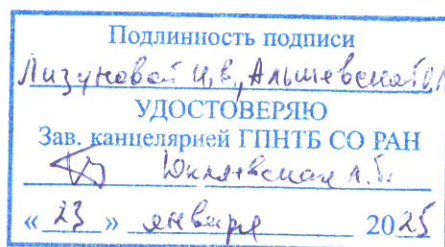 Подлинность подписи
Лизуновой И.В., Альшевской О.Н.
УДОСТОВЕРЯЮ
Зав. канцелярией ГПНТБ СО РАН
« 23 » января 2025